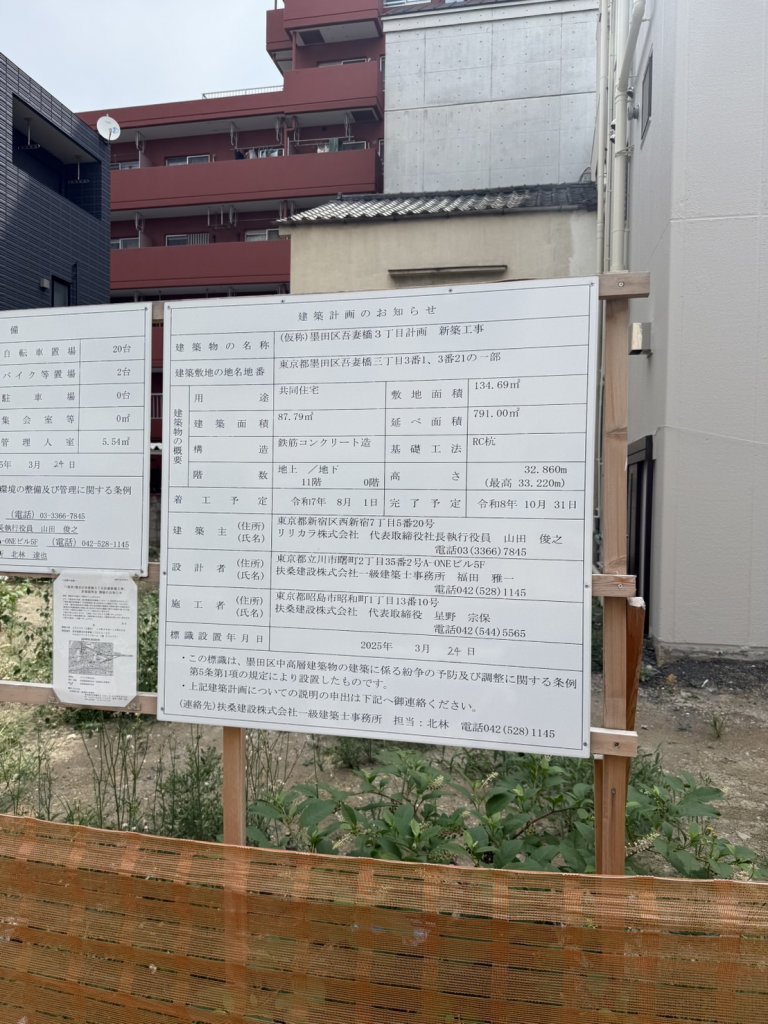 備
自転車置場 20台
バイク等置場 2台
駐車場 0台
集会室等 0㎡
管理人室 5.54㎡
5年 3月 24日
環境の整備及び管理に関する条例
(電話) 03-3366-7845
長執行役員 山田 俊之
A-ONEビル5F (電話) 042-528-1145
北林 達也
建築計画のお知らせ
建築物の名称 (仮称)墨田区吾妻橋3丁目計画 新築工事
建築敷地の地名地番 東京都墨田区吾妻橋三丁目3番1、3番21の一部
建築物の概要
用途 共同住宅 敷地面積 134.69㎡
建築面積 87.79㎡ 延べ面積 791.00㎡
構造 鉄筋コンクリート造 基礎工法 RC杭
階数 地上 /地下 高さ 32.860m
11階 0階 (最高 33.220m)
着工予定 令和7年 8月 1日 完了予定 令和8年 10月 31日
建築主 (住所) 東京都新宿区西新宿7丁目5番20号
(氏名) リリカラ株式会社 代表取締役社長執行役員 山田 俊之
電話03(3366)7845
設計者 (住所) 東京都立川市曙町2丁目35番2号A-ONEビル5F
(氏名) 扶桑建設株式会社一級建築士事務所 福田 雅一
電話042(528)1145
施工者 (住所) 東京都昭島市昭和町1丁目13番10号
(氏名) 扶桑建設株式会社 代表取締役 星野 宗保
電話042(544)5565
標識設置年月日 2025年 3月 24日
・この標識は、墨田区中高層建築物の建築に係る紛争の予防及び調整に関する条例
第5条第1項の規定により設置したものです。
・上記建築計画についての説明の申出は下記へ御連絡ください。
(連絡先)扶桑建設株式会社一級建築士事務所 担当:北林 電話042(528)1145